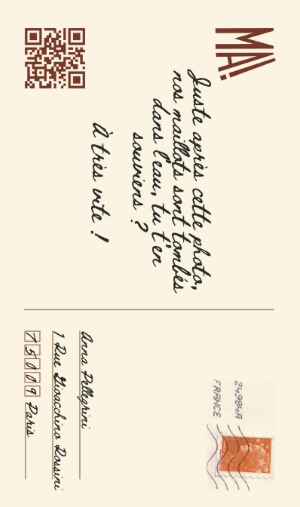 MA!
Juste après cette photo,
nos maillots sont tombés
dans l'eau, tu t'en
souviens ?
À très vite !
24298A
FRANCE
Anna Pellegrini
1 Rue Gioacchino Rossini
75009 Paris